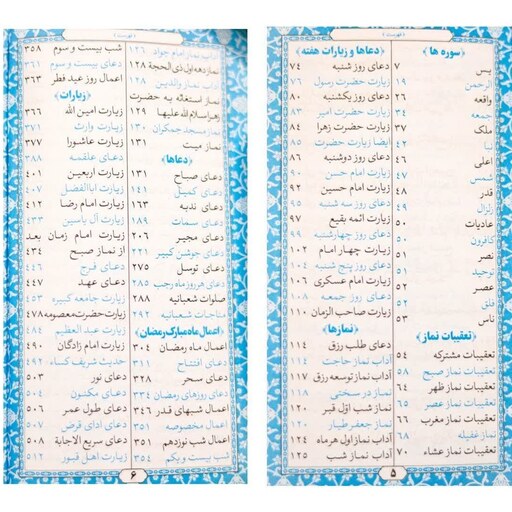 ﴿ فهرست ﴾
﴿ سوره ها ﴾
یس ۷
الرحمن ۱۹
واقعه ۲۶
جمعه ۳۴
ملک ۳۷
نبا ۴۲
اعلی ۴۶
شمس ۴۷
قدر ۴۸
زلزال ۴۹
عادیات ۵۰
کافرون ۵۰
نصر ۵۱
توحید ۵۱
عصر ۵۲
فلق ۵۲
ناس ۵۳
﴿ تعقیبات نماز ﴾
تعقیبات مشترکه ۵۴
تعقیبات نماز صبح ۵۸
تعقیبات نماز ظهر ۶۴
تعقیبات نماز عصر ۶۵
تعقیبات نماز مغرب ۶۶
نماز غفیله ۶۸
تعقیبات نماز عشاء ۷۰
﴿ دعاها و زیارات هفته ﴾
دعای روز شنبه ۷۴
زیارت حضرت رسول ۷۶
دعای روز یکشنبه ۸۰
زیارت حضرت امیر ۸۳
زیارت حضرت زهرا ۸۴
ایضا زیارت حضرت ۸۵
دعای روز دوشنبه ۸۶
زیارت امام حسن ۹۰
زیارت امام حسین ۹۲
دعای روز سه شنبه ۹۵
زیارت ائمه بقیع ۹۷
دعای روز چهارشنبه ۹۹
زیارت چهار امام ۱۰۲
دعای روز پنج شنبه ۱۰۴
زیارت امام عسکری ۱۰۶
دعای روز جمعه ۱۰۸
زیارت صاحب الزمان ۱۱۰
﴿ نمازها ﴾
دعای طلب رزق ۱۱۴
آداب نماز حاجت ۱۱۴
آداب نماز توسعه رزق ۱۱۷
نماز در سختی ۱۱۸
نماز شب اوّل قبر ۱۲۰
نماز جعفر طیار ۱۲۰
آداب نماز اول هر ماه ۱۲۴
آداب نماز شب ۱۲۵
۵
﴿ فهرست ﴾
آداب نماز امام جواد ۱۲۶
نماز دهه اول ذی الحجة ۱۲۸
آداب نماز والدین ۱۲۸
نماز استغاثه به حضرت
زهرا سلام الله علیها ۱۲۹
نماز مسجد جمکران ۱۳۰
نماز میت ۱۳۱
﴿ دعاها ﴾
دعای صباح ۱۳۱
دعای کمیل ۱۴۱
دعای ندبه ۱۶۳
دعای سمات ۱۸۹
دعای مجیر ۲۰۶
دعای جوشن کبیر ۲۲۱
دعای توسل ۲۷۵
دعای هر روز ماه رجب ۲۸۵
صلوات شعبانیه ۲۸۸
مناجات شعبانیه ۲۹۲
﴿ اعمال ماه مبارک رمضان ﴾
اعمال ماه رمضان ۳۰۴
دعای افتتاح ۳۱۱
دعای سحر ۳۲۸
دعای روزهای رمضان ۳۳۴
اعمال شبهای قدر ۳۴۶
اعمال مخصوصه ۳۵۱
اعمال شب نوزدهم ۳۵۱
شب بیست و یکم ۳۵۴
شب بیست و سوم ۳۵۸
دعای بیست و سوم ۳۶۱
اعمال روز عید فطر ۳۶۳
﴿ زیارات ﴾
زیارت امین الله ۳۶۶
زیارت وارث ۳۷۱
زیارت عاشورا ۳۷۷
دعای علقمه ۳۸۸
زیارت اربعین ۴۰۱
زیارت اباالفضل ۴۰۷
زیارت امام رضا ۴۱۲
زیارت آل یاسین ۴۲۳
زیارت امام زمان بعد
از نماز صبح ۴۳۴
دعای فرج ۴۴۶
دعای عهد ۴۴۷
زیارت جامعه کبیره ۴۵۳
زیارت حضرت معصومه ۴۷۸
زیارت عبد العظیم ۴۸۴
زیارت امام زادگان ۴۹۰
حدیث شریف کساء ۴۹۲
دعای نور ۵۰۳
دعای مکنون ۵۰۴
دعای طول عمر ۵۰۶
دعای ادای قرض ۵۰۷
دعای سریع الاجابة ۵۰۸
زیارت اهل قبور ۵۱۲
۶